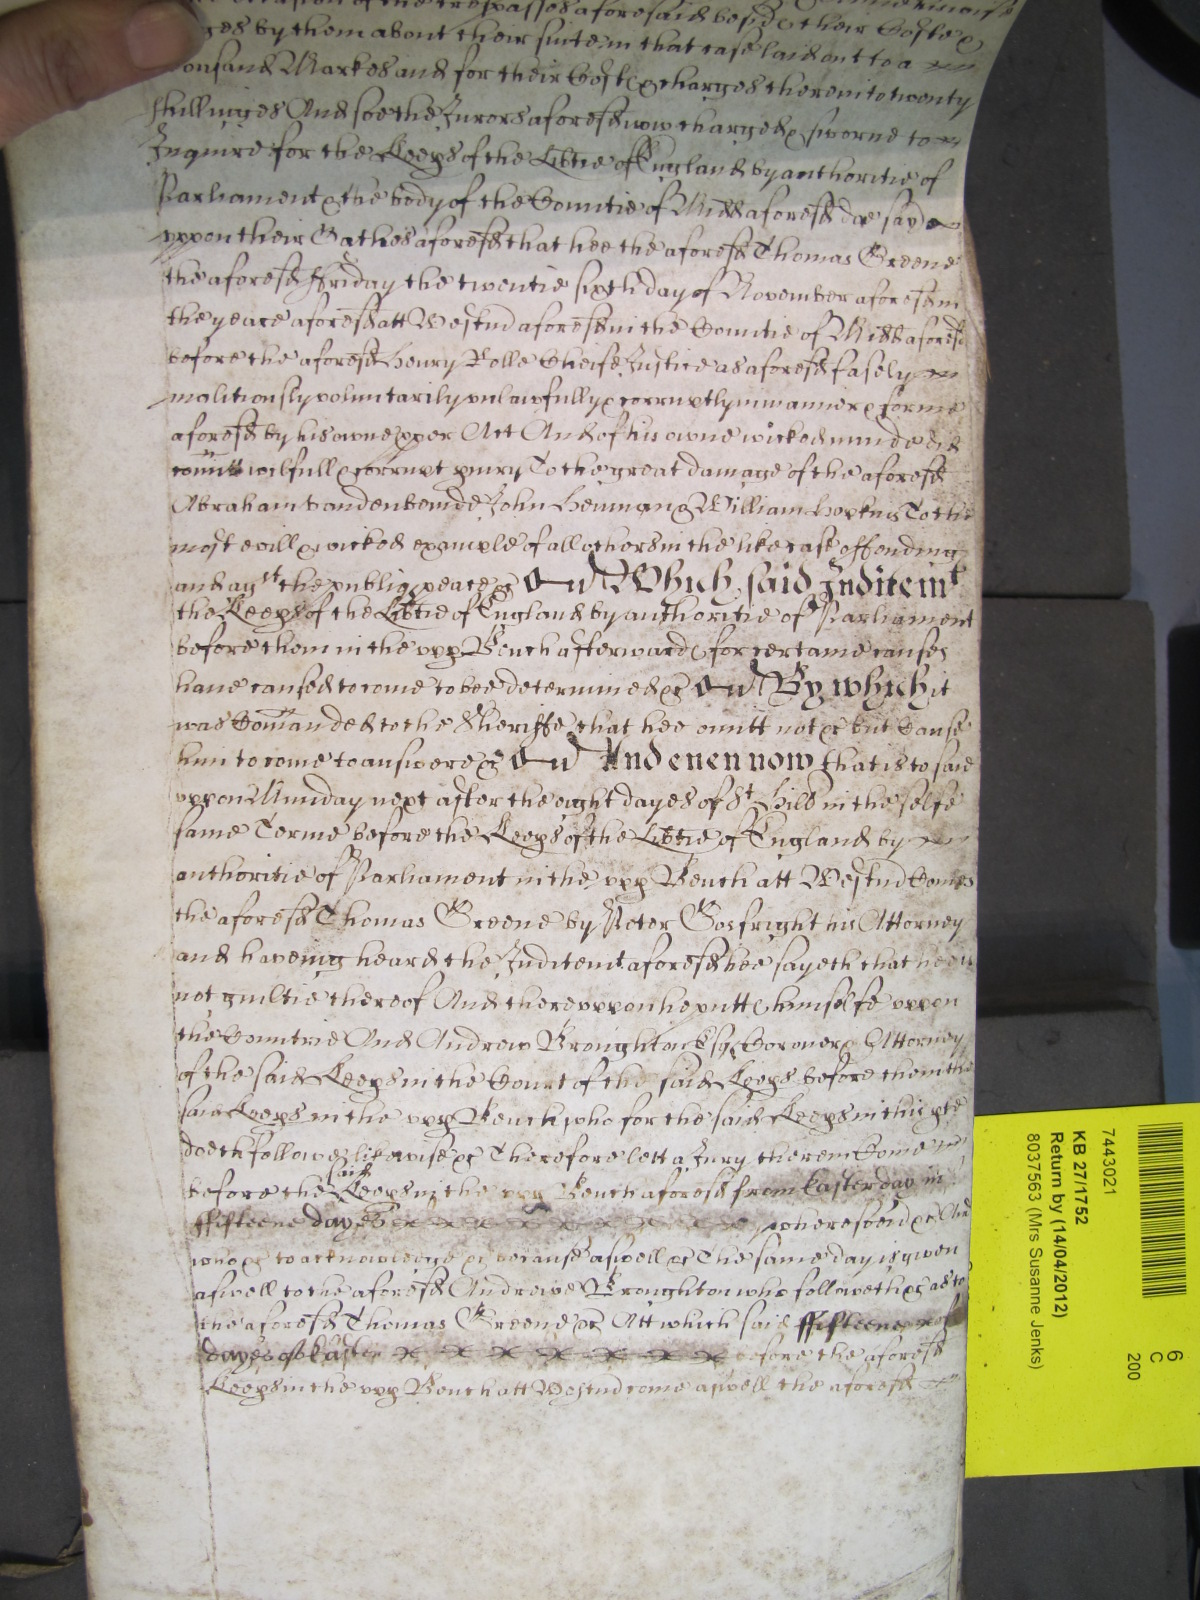 occasion of the trespasses aforesaid besid& their Coste &
ges by them about their suite in that case laid out to a
Thousand Markes and for their Cost & charges therein to twenty
shillinges And soe the Jurors aforesd now charged & sworne to
Inquire for the Keeps of the Libtie of England by authoritie of
Parliament & the body of the Countie of Midd aforesd doe say
uppon their Oathes aforesd that hee the aforesd Thomas Greene
the aforesd ffriday the twentie sixth day of November aforesd in
the yeare aforesd att Westmd aforesd in the Countie of Midd aforesd
before the aforesd Henry Rolle Cheife Justice as aforesd falsely
malitiously voluntarily unlawfully & corruptly in manner & forme
aforesd by his owne pper Act And of his owne wicked minde did
comitt wilfull & corrupt piury To the great damage of the aforesd
Abraham vandenbemde John Heyman & William Hopkins To the
most evill & wicked example of all others in the like case offending
and agst the publiq peace &c And Which said Inditemt
the Keeps of the Libtie of England by authoritie of Parliament
before them in the upp Bench afterward for certaine causes
have caused to come to bee determined &c And By which it
was Comanded to the Sheriffe that hee omitt not &c but Cause
him to come to answere &c And And even now that is to saie
uppon Munday next after the eight dayes of St Hill in the selfe
same Terme before the Keeps of the Libtie of England by
authoritie of Parliament in the upp Bench att Westmd Comes
the aforesd Thomas Greene by Peter Gosfright his Attorney
and haveing heard the Inditemt aforesd hee sayeth that hee is
not guiltie thereof And thereuppon he putts himselfe uppon
the Countrie And Andrew Broughton Esq Coroner & Attorney
of the said Keeps in the Court of the said Keeps before them the
said Keeps in the upp Bench who for the said Keeps in this pte
doeth followe likewise &c Therefore lett a Jury therein Come
before the said Keeps in the upp Bench aforesd from Easter day in
ffifteene dayes by whom &c And
who &c to acknowledge &c because aswell &c The same day is given
aswell to the aforesd Andrewe Broughton who followeth &c as to
the aforesd Thomas Greene &c Att which said ffifteene
dayes of Easter before the aforesd
Keeps in the upp Bench att Westmd come aswell the aforesd
7443021
KB 27/1752
Return by (14/04/2012)
8037563 (Mrs Susanne Jenks)
6
C
200